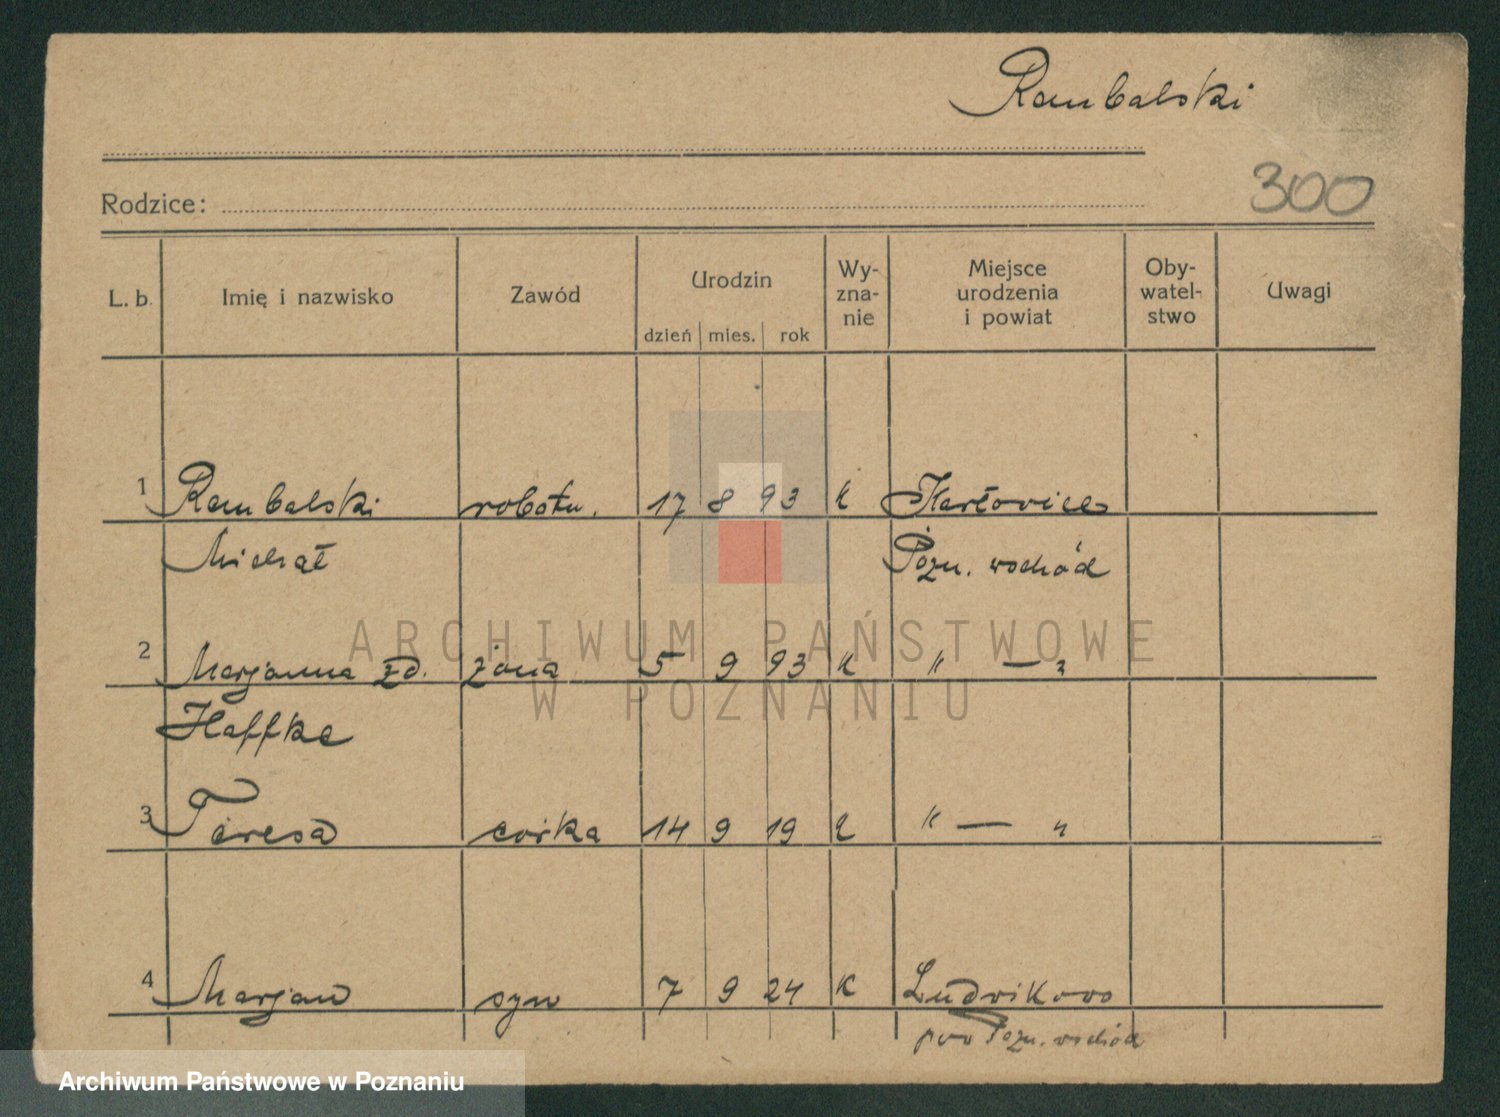 Rambalski
300
Rodzice:
L. b. Imię i nazwisko Zawód Urodzin dzień mies. rok Wy-zna-nie Miejsce urodzenia i powiat Oby-watel-stwo Uwagi
1 Rambalski robotn. 17 8 93 k Karłowice
Michał Pozn. wschód
2 Marjanna zd. żona 5 9 93 k " — "
Haffke
3 Teresa córka 14 9 19 k " — "
4 Marjan syn 7 9 24 k Ludwikowo
pow Pozn. wschód
ARCHIWUM PAŃSTWOWE
W POZNANIU
Archiwum Państwowe w Poznaniu